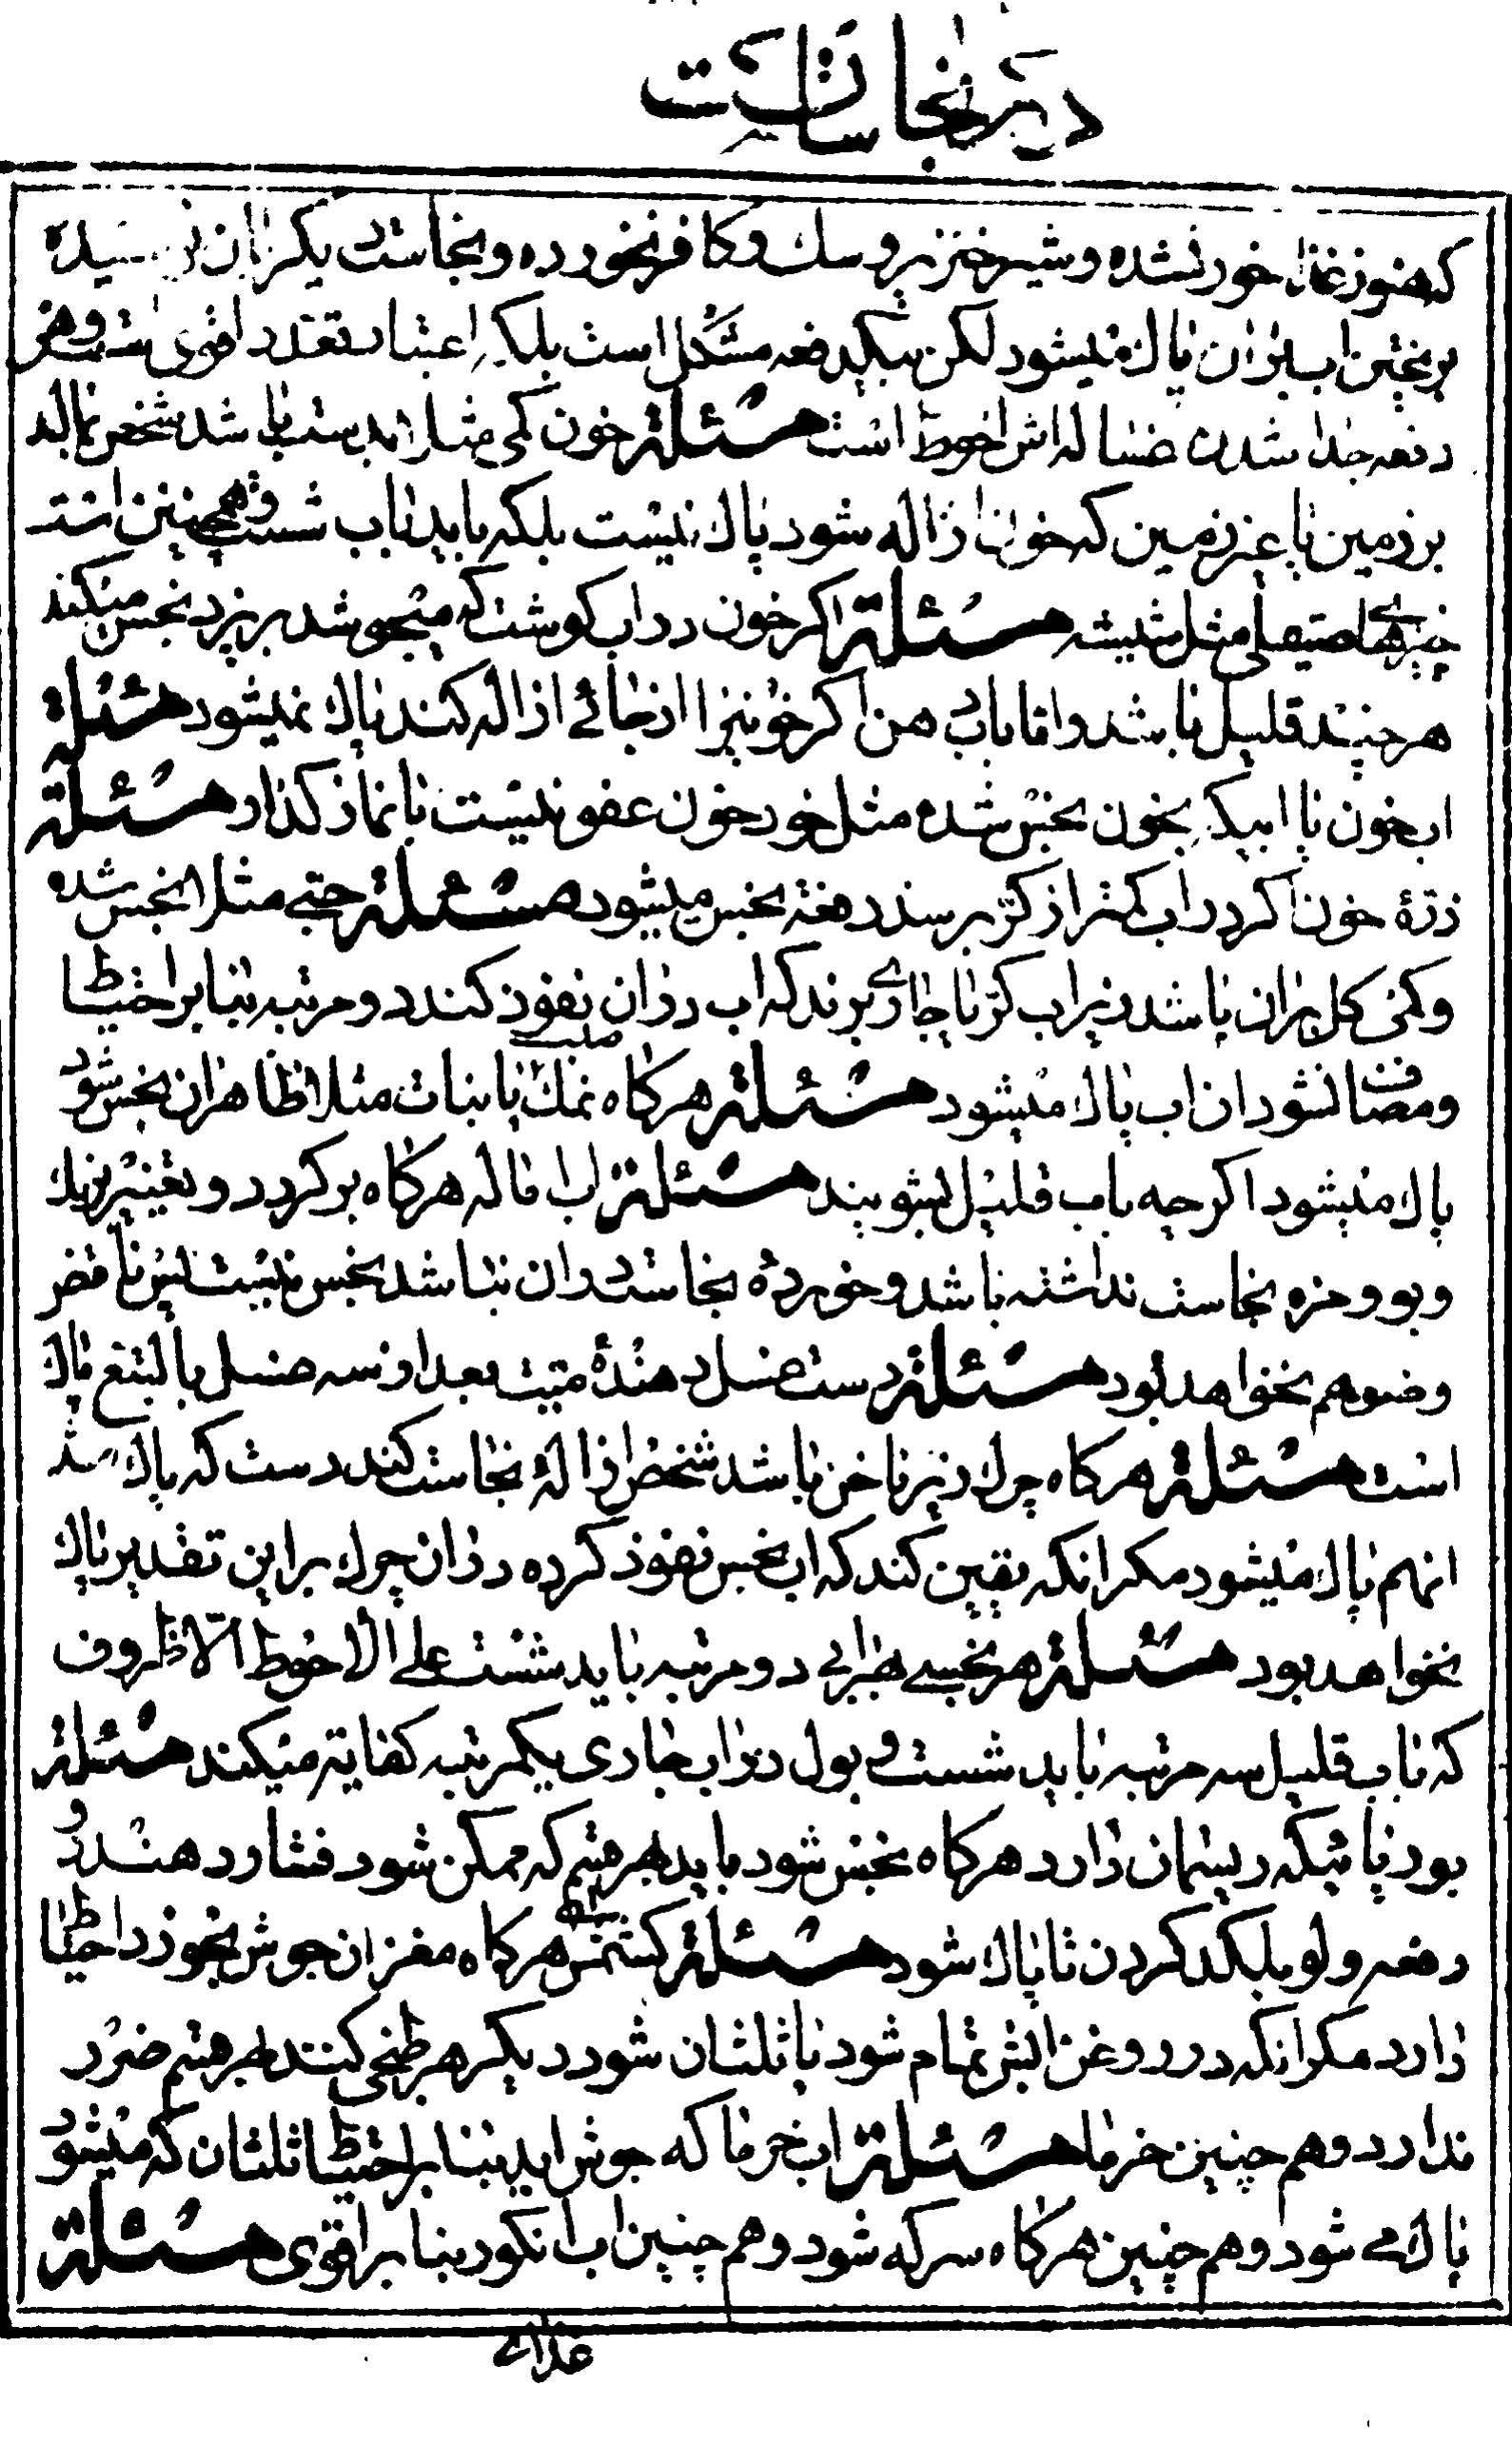 در نجاسات است
که هنوز غذا خور نشده و شیر خنزیر و سك و کافر نخورده و نجاست دیکر بان نرسیده
بریختن اب بران پاك میشود لکن بیکدفعه مشکل است بلکه اعتبار تعدد اقوی است و در هر
دفعه جدا شدن غساله اش احوط است مسئلة خون کمی مثلا بدست باشد شخص بمالد
بر زمین یا غیر زمین که خون ازاله شود پاك نیست بلکه باید باب شست و همچنین است
چیزهای صیقلی مثل شیشه مسئلة اکر خون در اب کوشت که میجوشد بریزد نجس میکند
هر چند قلیل باشد و اما باب دهن اکر خونیرا از جائے ازاله کند پاك نمیشود مسئلة
اب خون یا ابیکه بخون نجس شده مثل خود خون عفو نیست با نماز کذارد مسئلة
ذرۀ خون اکر در اب کمتر از کر برسد دفعة نجس میشود مسئلة حبے مثلا نجس شده
و کمی کل بران باشد زیر اب کر یا جاری برند که اب در ان نفوذ کند دو مرتبه بنا بر احتیاط
و مضاف نشود ان اب پاك میشود مسئلة هرکاه نمك یا نبات صلب مثلا ظاهر ان نجس شود
پاك میشود اکر چه باب قلیل بشویند مسئلة اب اماله هرکاه برکردد و تغییر برنك
و بو و مزه نجاست نداشته باشد و خورده نجاست در ان نباشد نجس نیست پس ناقض
وضو هم نخواهد بود مسئلة دست غسل دهندۀ میت بعد از سه غسل بالتبع پاك
است مسئلة هرکاه چرك زیر ناخن باشد شخص ازالۀ نجاست کند دست که پاك شد
انهم پاك میشود مکر انکه یقین کند که اب نجس نفوذ کرده در ان چرك بر این تقدیر پاك
نخواهد بود مسئلة هر نجسے بهر ابی دو مرتبه باید شست علی الاحوط الا ظروف
که باب قلیل سه مرتبه باید شست و بول در اب جاری یکمرتبه کفایة میکند مسئلة
بوریائیکه ریسمان دارد هرکاه نجس شود باید بهر قسم که ممکن شود فشار دهند در دو
دفعه ولو بلکد کردن تا پاك شود مسئلة کشمش هرکاه مغز ان جوش بخورد احتیاط
دارد مکر انکه در روغن ابش تمام شود یا ثلثان شود دیکر هر طبخی کنند بهر قسم ضرر
ندارد و هم چنین خرما مسئلة اب خرما که جوش اید بنا بر احتیاط ثلثان که میشود
پاك مے شود و هم چنین هرکاه سرکه شود و هم چنین اب انکور بنا بر اقوی مسئلة
غذائے